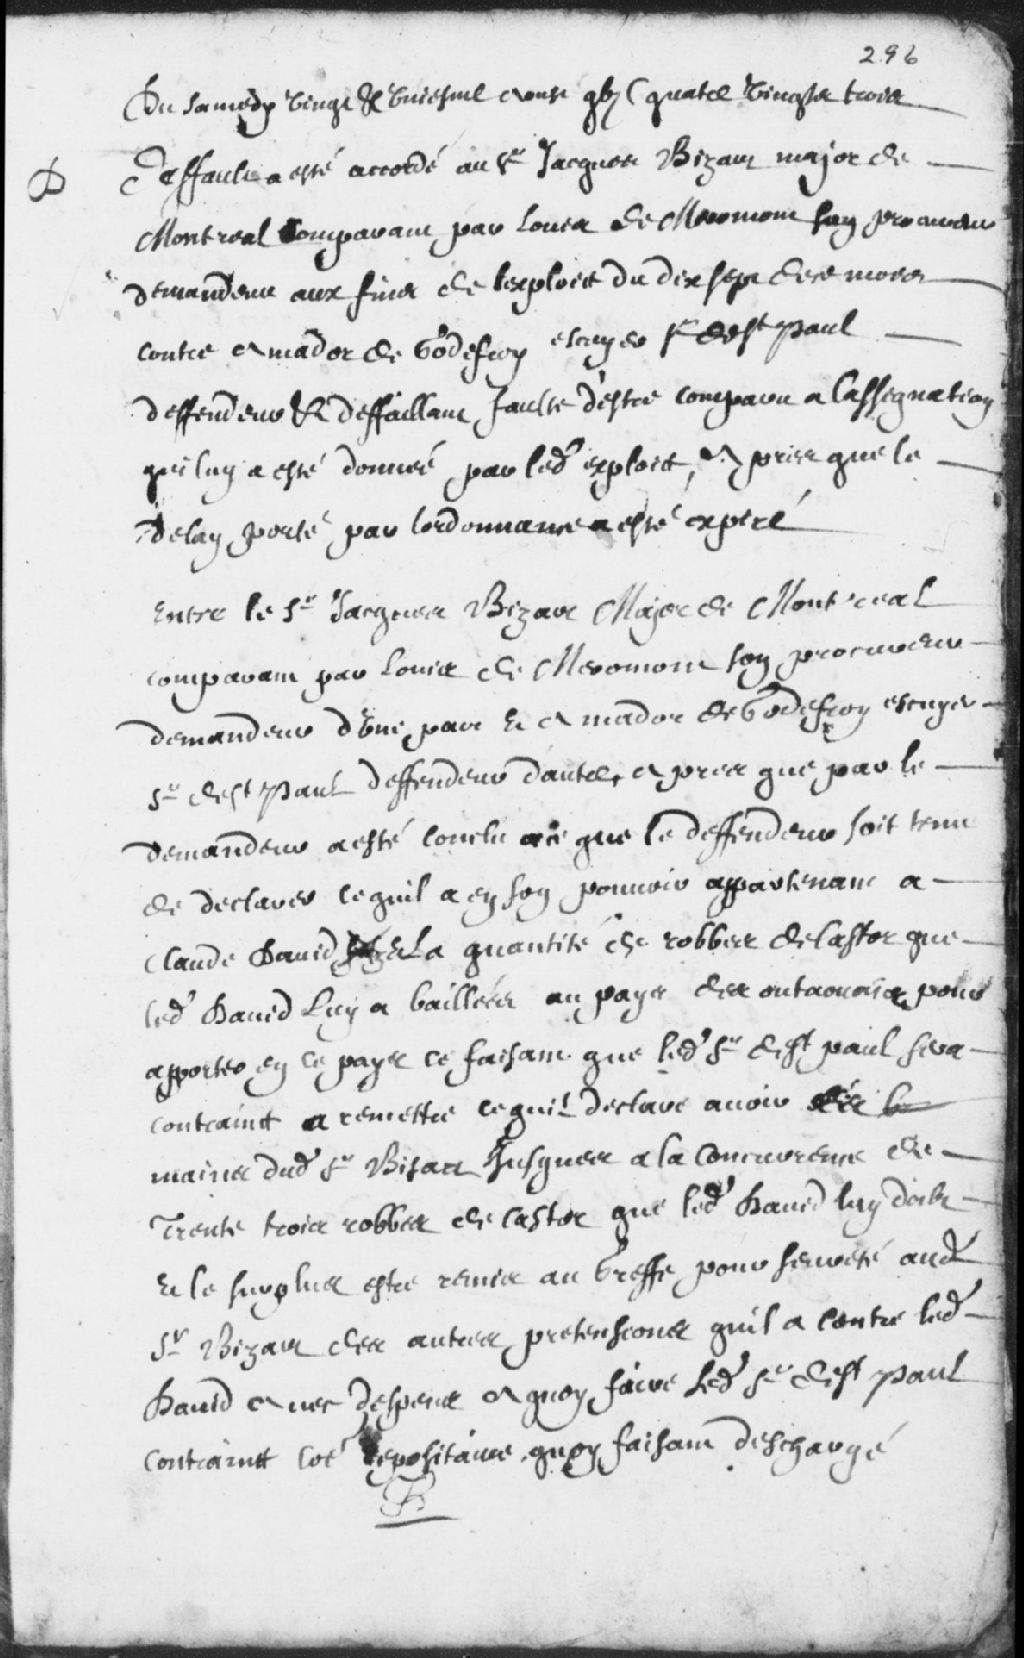 296
Du samedy vingt & huiesme Aoust gbjC quatre vingts trois
D
Deffault a esté accordé au Sr Jacques Bizart major de
Montreal comparant par Louis de Meromont son procureur
demandeur aux fins de lexploict du dix sept de ce mois
contre Amador de Godefroy escuyer Sr de St Paul
deffendeur & deffaillant faulte d'estre comparu a lassegnation
qui luy a esté donnée par led exploict, Apres que le
delay porté par lordonnance a esté expiré
Entre le Sr Jacques Bizart Major de Montreal
comparant par Louis de Meromont son procureur
demandeur d'une part Et Amador de Godefroy escuyer
Sr de St Paul deffendeur dautre, Apres que par le
demandeur a esté conclu a ce que le deffendeur soit tenu
de declarer ce quil a en son pouvoir appartenant a
Claude David & la quantité de robbes de Castor que
led David luy a baillées au pays des outaouais pour
apporter en ce pays ce faisant que led Sr de St paul sera
contrainct a remettre ce quil declare avoir és
mains dud Sr Bizart Jusques a la concurrence de
Trente trois robbes de Castor que led David luy doibt
Et le surplus estre remis au Greffe pour seureté aud
Sr Bizart des autres pretensions quil a contre led
David Avec despens A quoy faire led Sr de St Paul
contrainct coe depositaire, quoy faisant deschargé